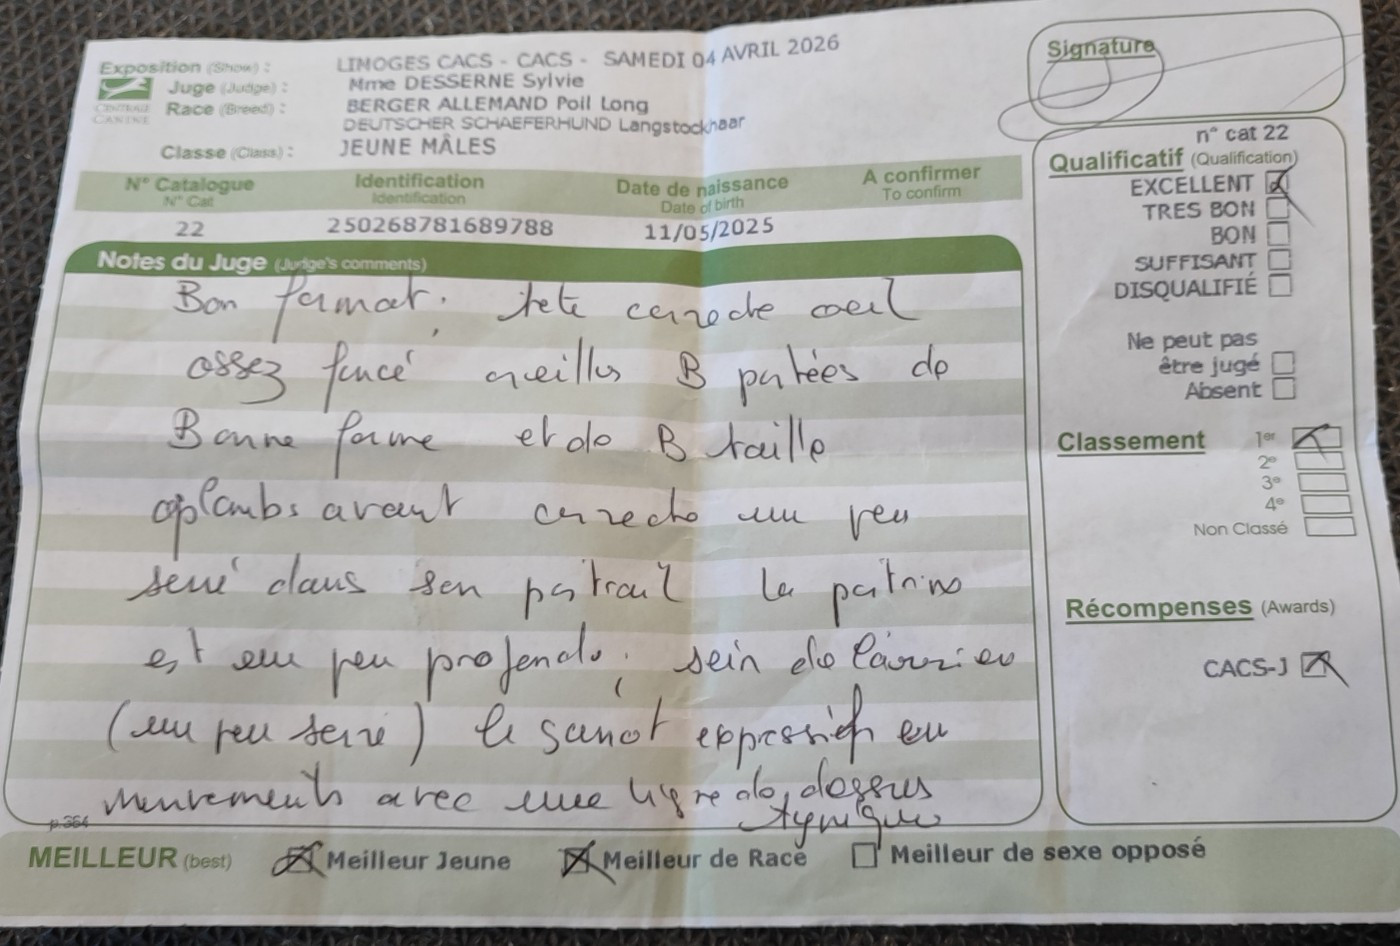 Exposition (Show) : LIMOGES CACS - CACS - SAMEDI 04 AVRIL 2026
Juge (Judge) : Mme DESSERNE Sylvie
Race (Breed) : BERGER ALLEMAND Poil Long
DEUTSCHER SCHAEFERHUND Langstockhaar
CENTRALE
CANINE
Classe (Class) : JEUNE MÂLES
N° Catalogue Identification Date de naissance A confirmer
N° Cat Identification Date of birth To confirm
22 250268781689788 11/05/2025
Notes du Juge (Judge's comments)
Bon format. tete correcte oeil
assez foncé oreilles B portées de
Bonne forme et de B taille
aplombs avant correcte un peu
serré dans son poitrail la poitrine
est un peu profende.
(un peu serré) le expressif en
mouvements avec une ligne de dessus
p.364
MEILLEUR (best) Meilleur Jeune Meilleur de Race Meilleur de sexe opposé
Signature
n° cat 22
Qualificatif (Qualification)
EXCELLENT
TRES BON
BON
SUFFISANT
DISQUALIFIÉ
Ne peut pas
être jugé
Absent
Classement 1er
2e
3e
4e
Non Classé
Récompenses (Awards)
CACS-J